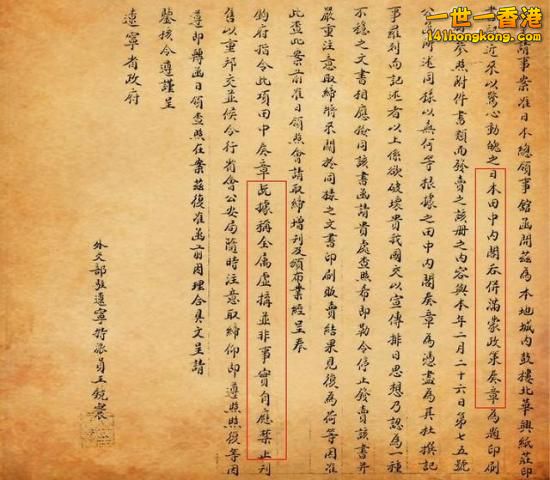 一世一香港
141hongkong.com
請事案准日本總領事館函開茲為本地城內鼓樓北華興紙莊印
近來以驚心動魄之日本田中內閣吞併滿蒙政策奏章為題印刷
參照附件書類而發賣之該冊之內容與本年二月二十六日第七五號
公所述同樣以無何等根據之田中內閣奏章為憑盡為具杜撰記
事羅列而記述者以上係欲破壞貴我國交以宣傳排日思想乃認為一種
不穩之文書相應按同該書函請貴處查照希即勒令停止發賣該書并
嚴重注意取締將來關於同樣之文書印刷販賣結果見復為荷等准
此查此案前准日領照會請取締增刊及頒布業經呈奉
鈞府指令此項田中奏章此據稱全屬虛構並非事實自應禁止刊
售以重邦交並候分行省會公安局隨時注意取締仰即遵照照復等因
遵即轉函日領查照在案茲復准函前因理合具文呈請
鑒核令遵謹呈
遼寧省政府
外交部駐遼寧特派員王鏡寰